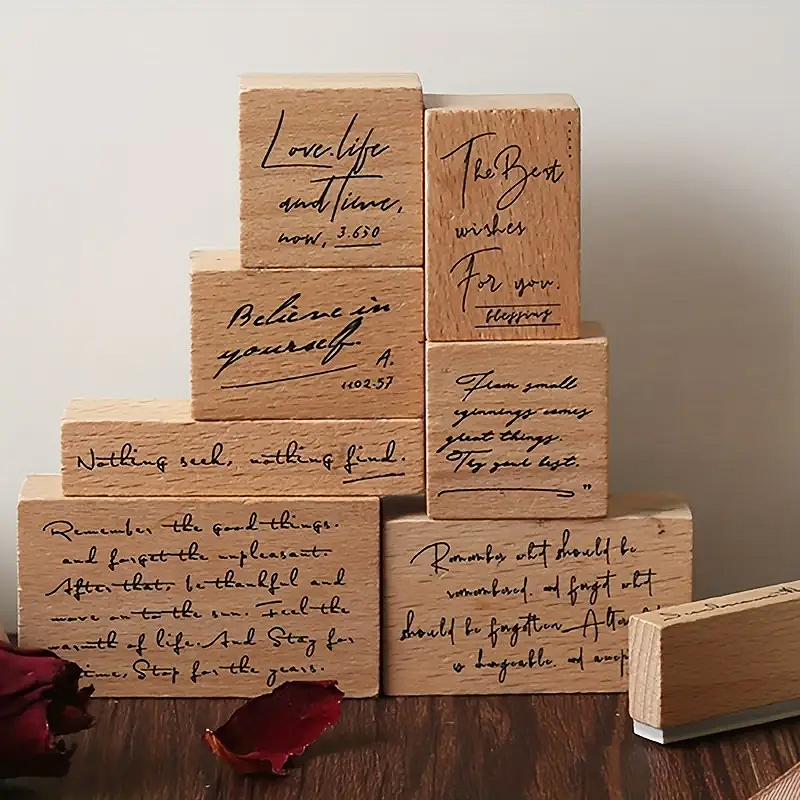 Love.life
and Time,
now, 3.650
The Best
wishes
For you.
blessing
Believe in
yourself.
A.
1102-57
From small
eginnings comes
great things.
Try your best.
"
Nothing seek, nothing find.
Remember the good things.
and forget the unpleasant.
After that, be thankful and
move on to the sun. Feel the
warmth of life. And Stay for
time, Stop for the years.
Remember what should be
remembered, and forget what
should be forgotten. Alter
is changeable. and accep